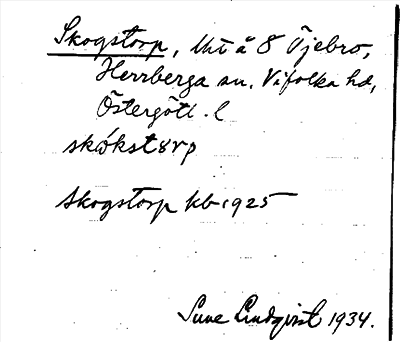 Skogstorp, lht å 8 Öjebro,
Herrberga sn. Vifolka hd,
Östergötl. l
skókst8rp
Skogstorp kb 1925
Sune Lindqvist 1934.